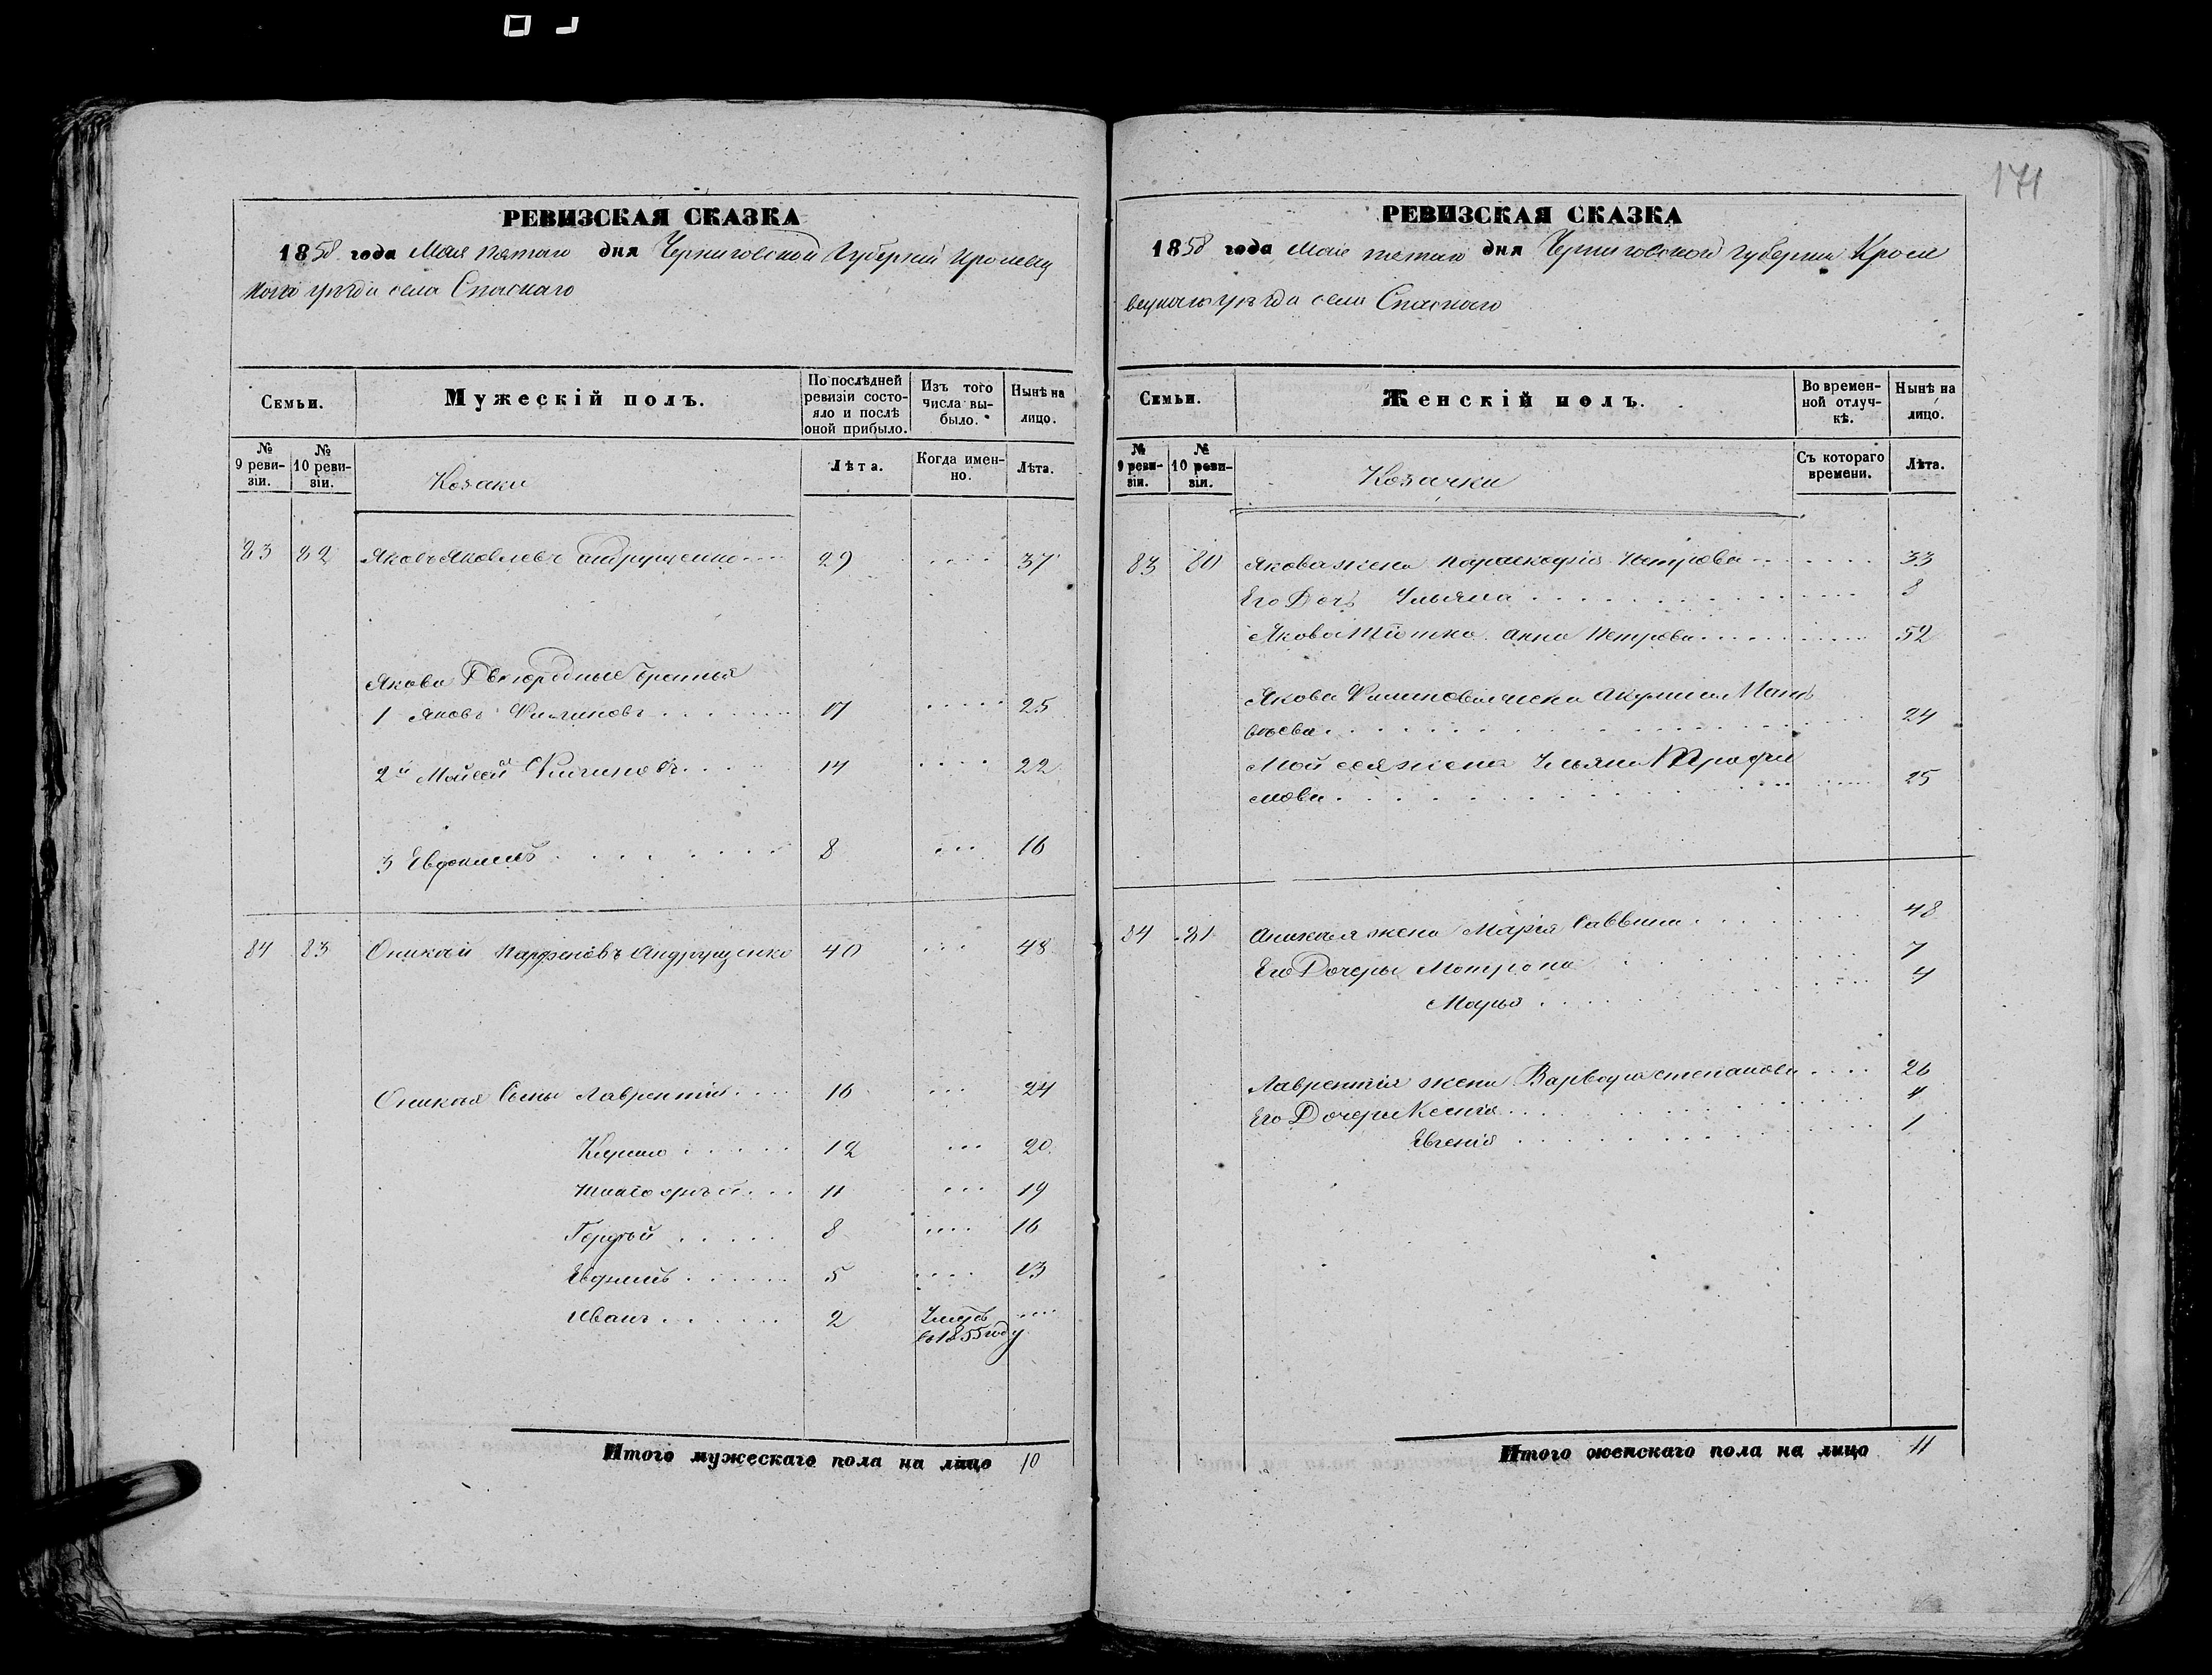 171
РЕВИЗСКАЯ СКАЗКА
1858 года Мая пятаго дня Черниговской Губерніи Кролевец
кого уезда села Спаскаго
Семьи.
Мужескій полъ.
По послѣдней ревизіи состояло и послѣ оной прибыло.
Изъ того числа выбыло.
Нынѣ на лицо.
№ 9 ревизіи.
№ 10 ревизіи.
Козаки
Лѣта.
Когда именно.
Лѣта.
83 82 Яковъ Яковлевъ Андрущенко 29 37
Якова Двоюродные братья
1 Яковъ Филиповъ 17 25
2й Мойсей Филиповъ 14 22
3 Евдокимъ 8 16
84 83 Оникѣй Парфеновъ Андрущенко 40 48
Оникѣя Сыны Лаврентій 16 24
Кирило 12 20
11 19
Гордѣй 8 16
Евфимъ 5 13
Иванъ 2 Умеръ
въ 1855 году
Итого мужескаго пола на лицо 10
РЕВИЗСКАЯ СКАЗКА
1858 года Мая пятаго дня Черниговской губерніи Кроле
вецкаго уѣзда села Спаскаго
Семьи.
Женскій полъ.
Во временной отлучкѣ.
Нынѣ на лицо.
№ 9 ревизіи.
№ 10 ревизіи.
Козачки
Съ котораго времени.
Лѣта.
83 80 Якова жена Параскофія Петрова 33
Его Дочь Ульяна 8
Якова Тiотка Анна Петрова 52
Якова Филипова жена Акулина Мат
вѣева 24
Мойсея жена Ульяна Трофи
мова 25
84 81 Оникѣя жена Марія Саввина 48
Его Дочери Мотрона 7
Марья 4
Лаврентія жена Варвара степанова 26
Его Дочери Ксенія 4
Евгенія 1
Итого женскаго пола на лицо 11